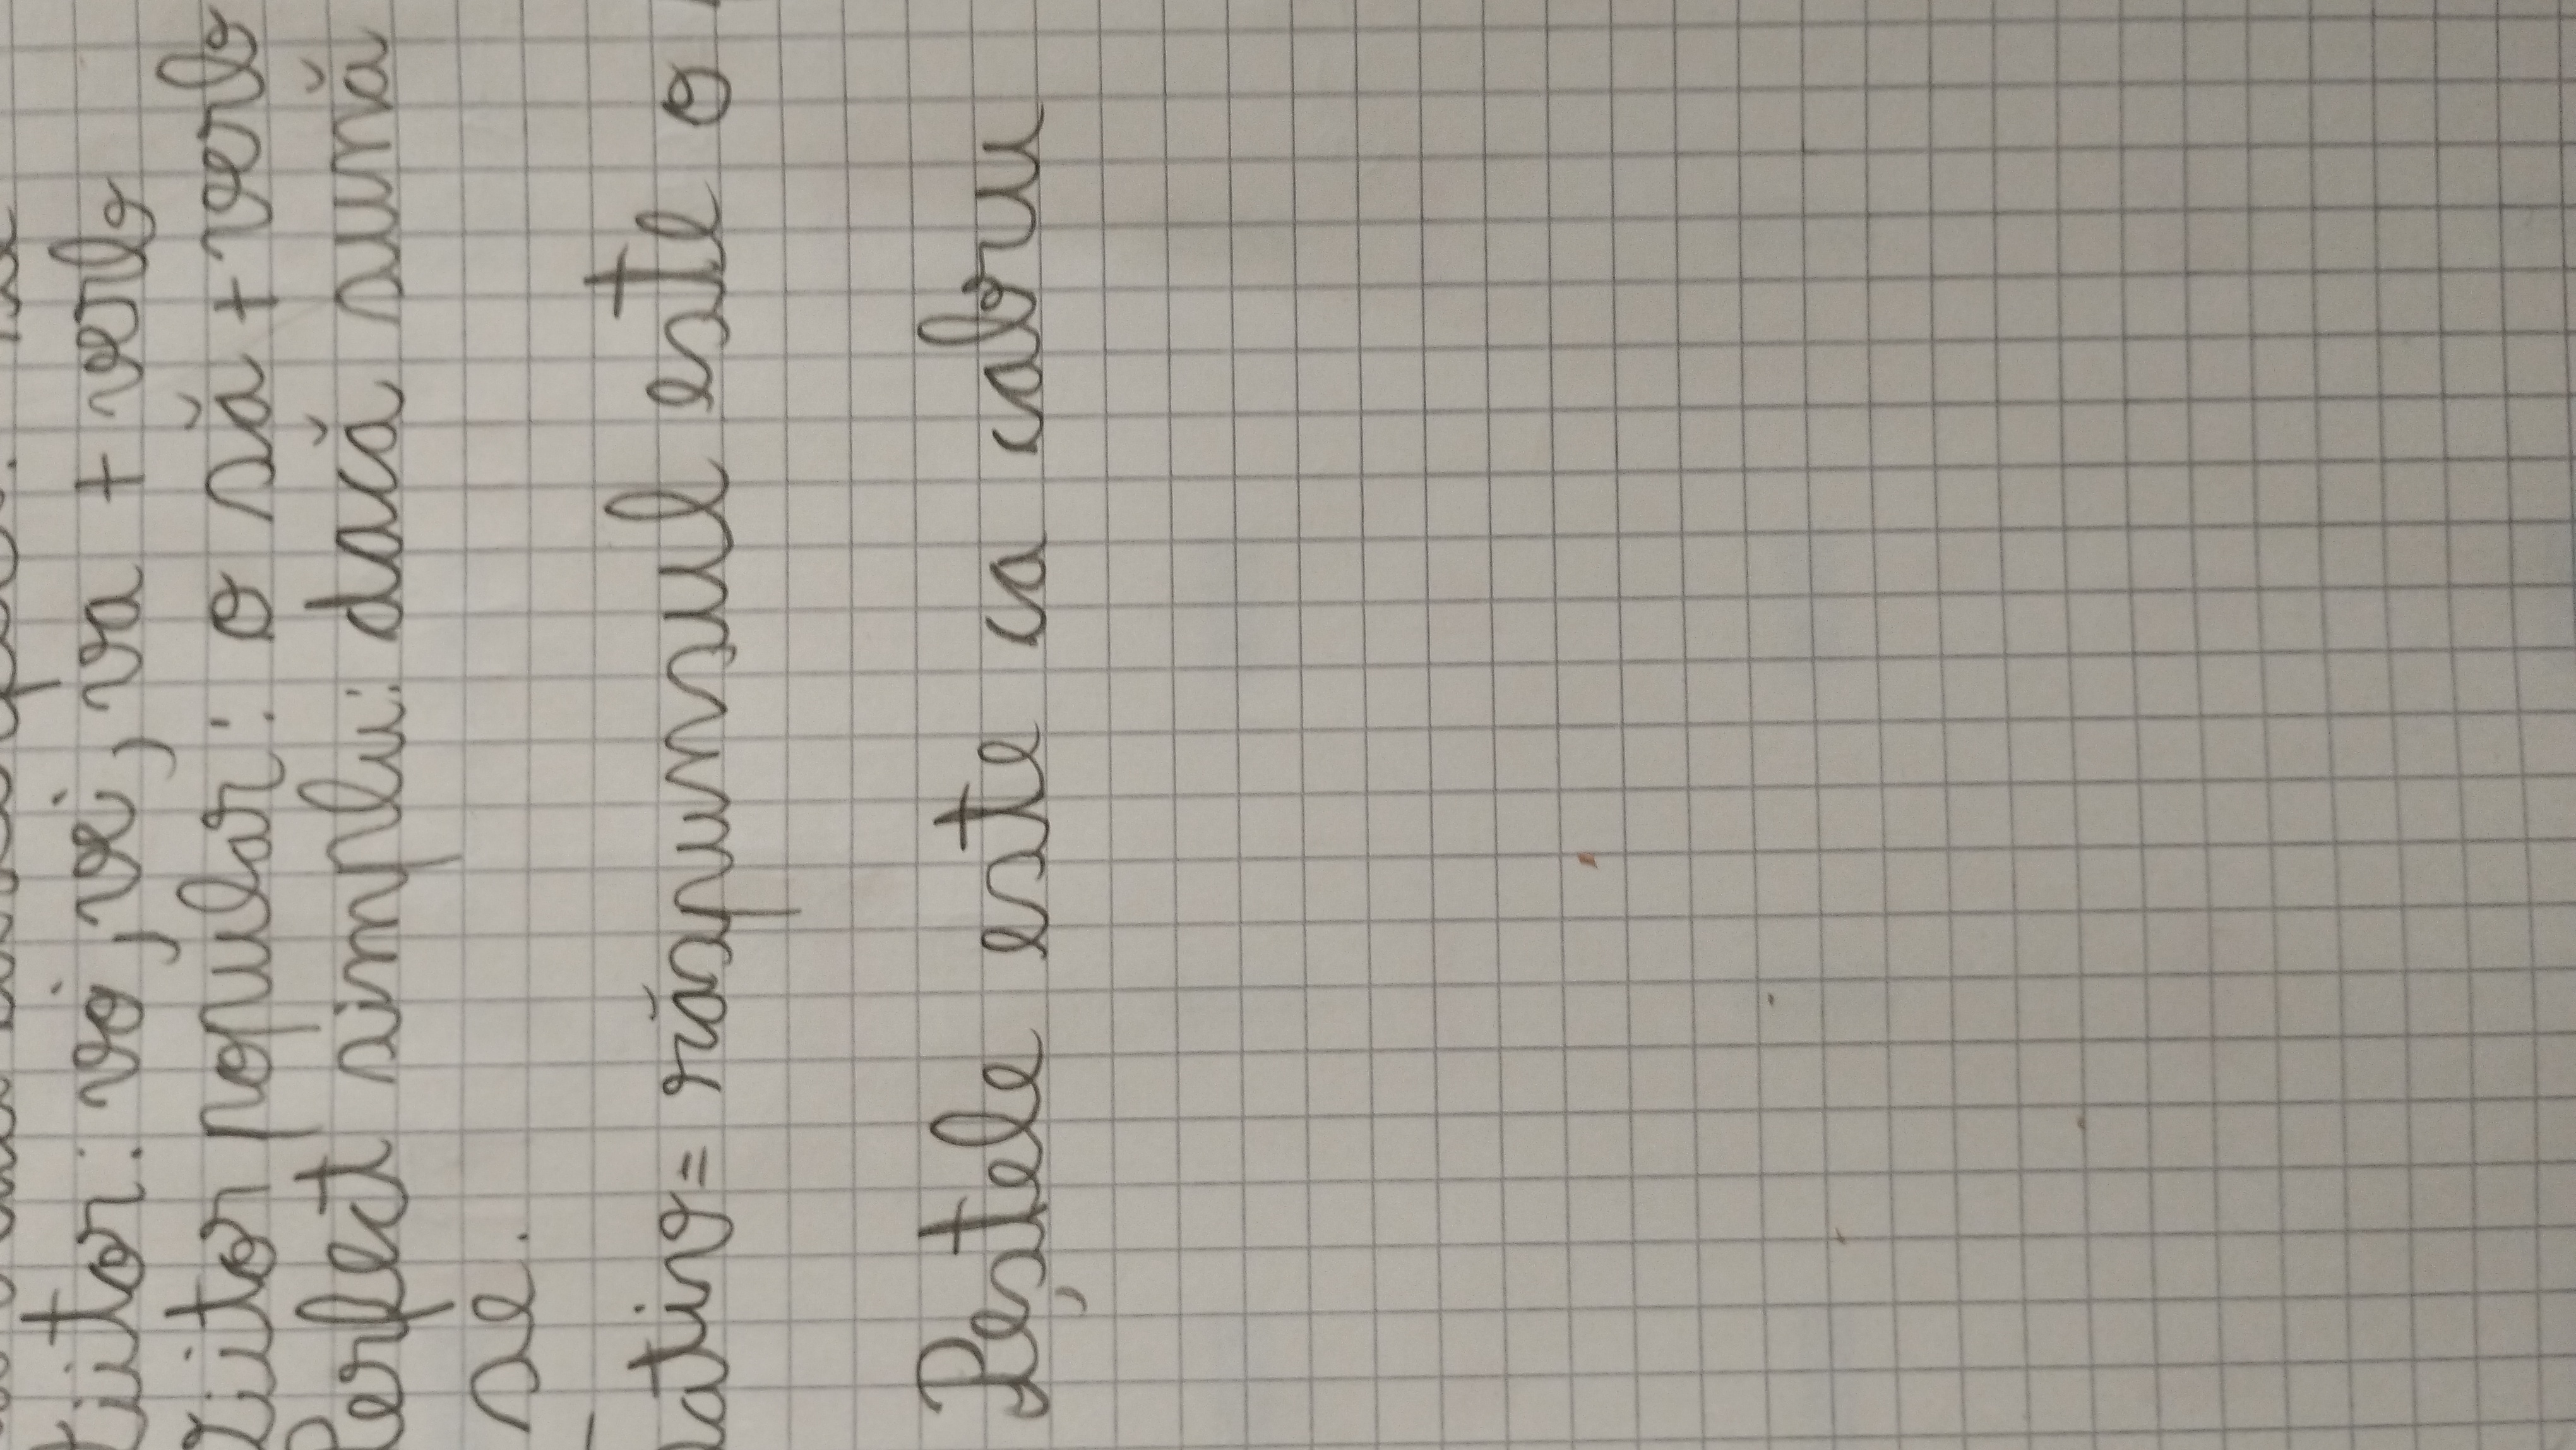 viitor: vo, ve, va + verb
Viitor popular: o să + verb
Perfect simplu: dacă sună
se.
răspunsul este o
Peștele este ca cabru